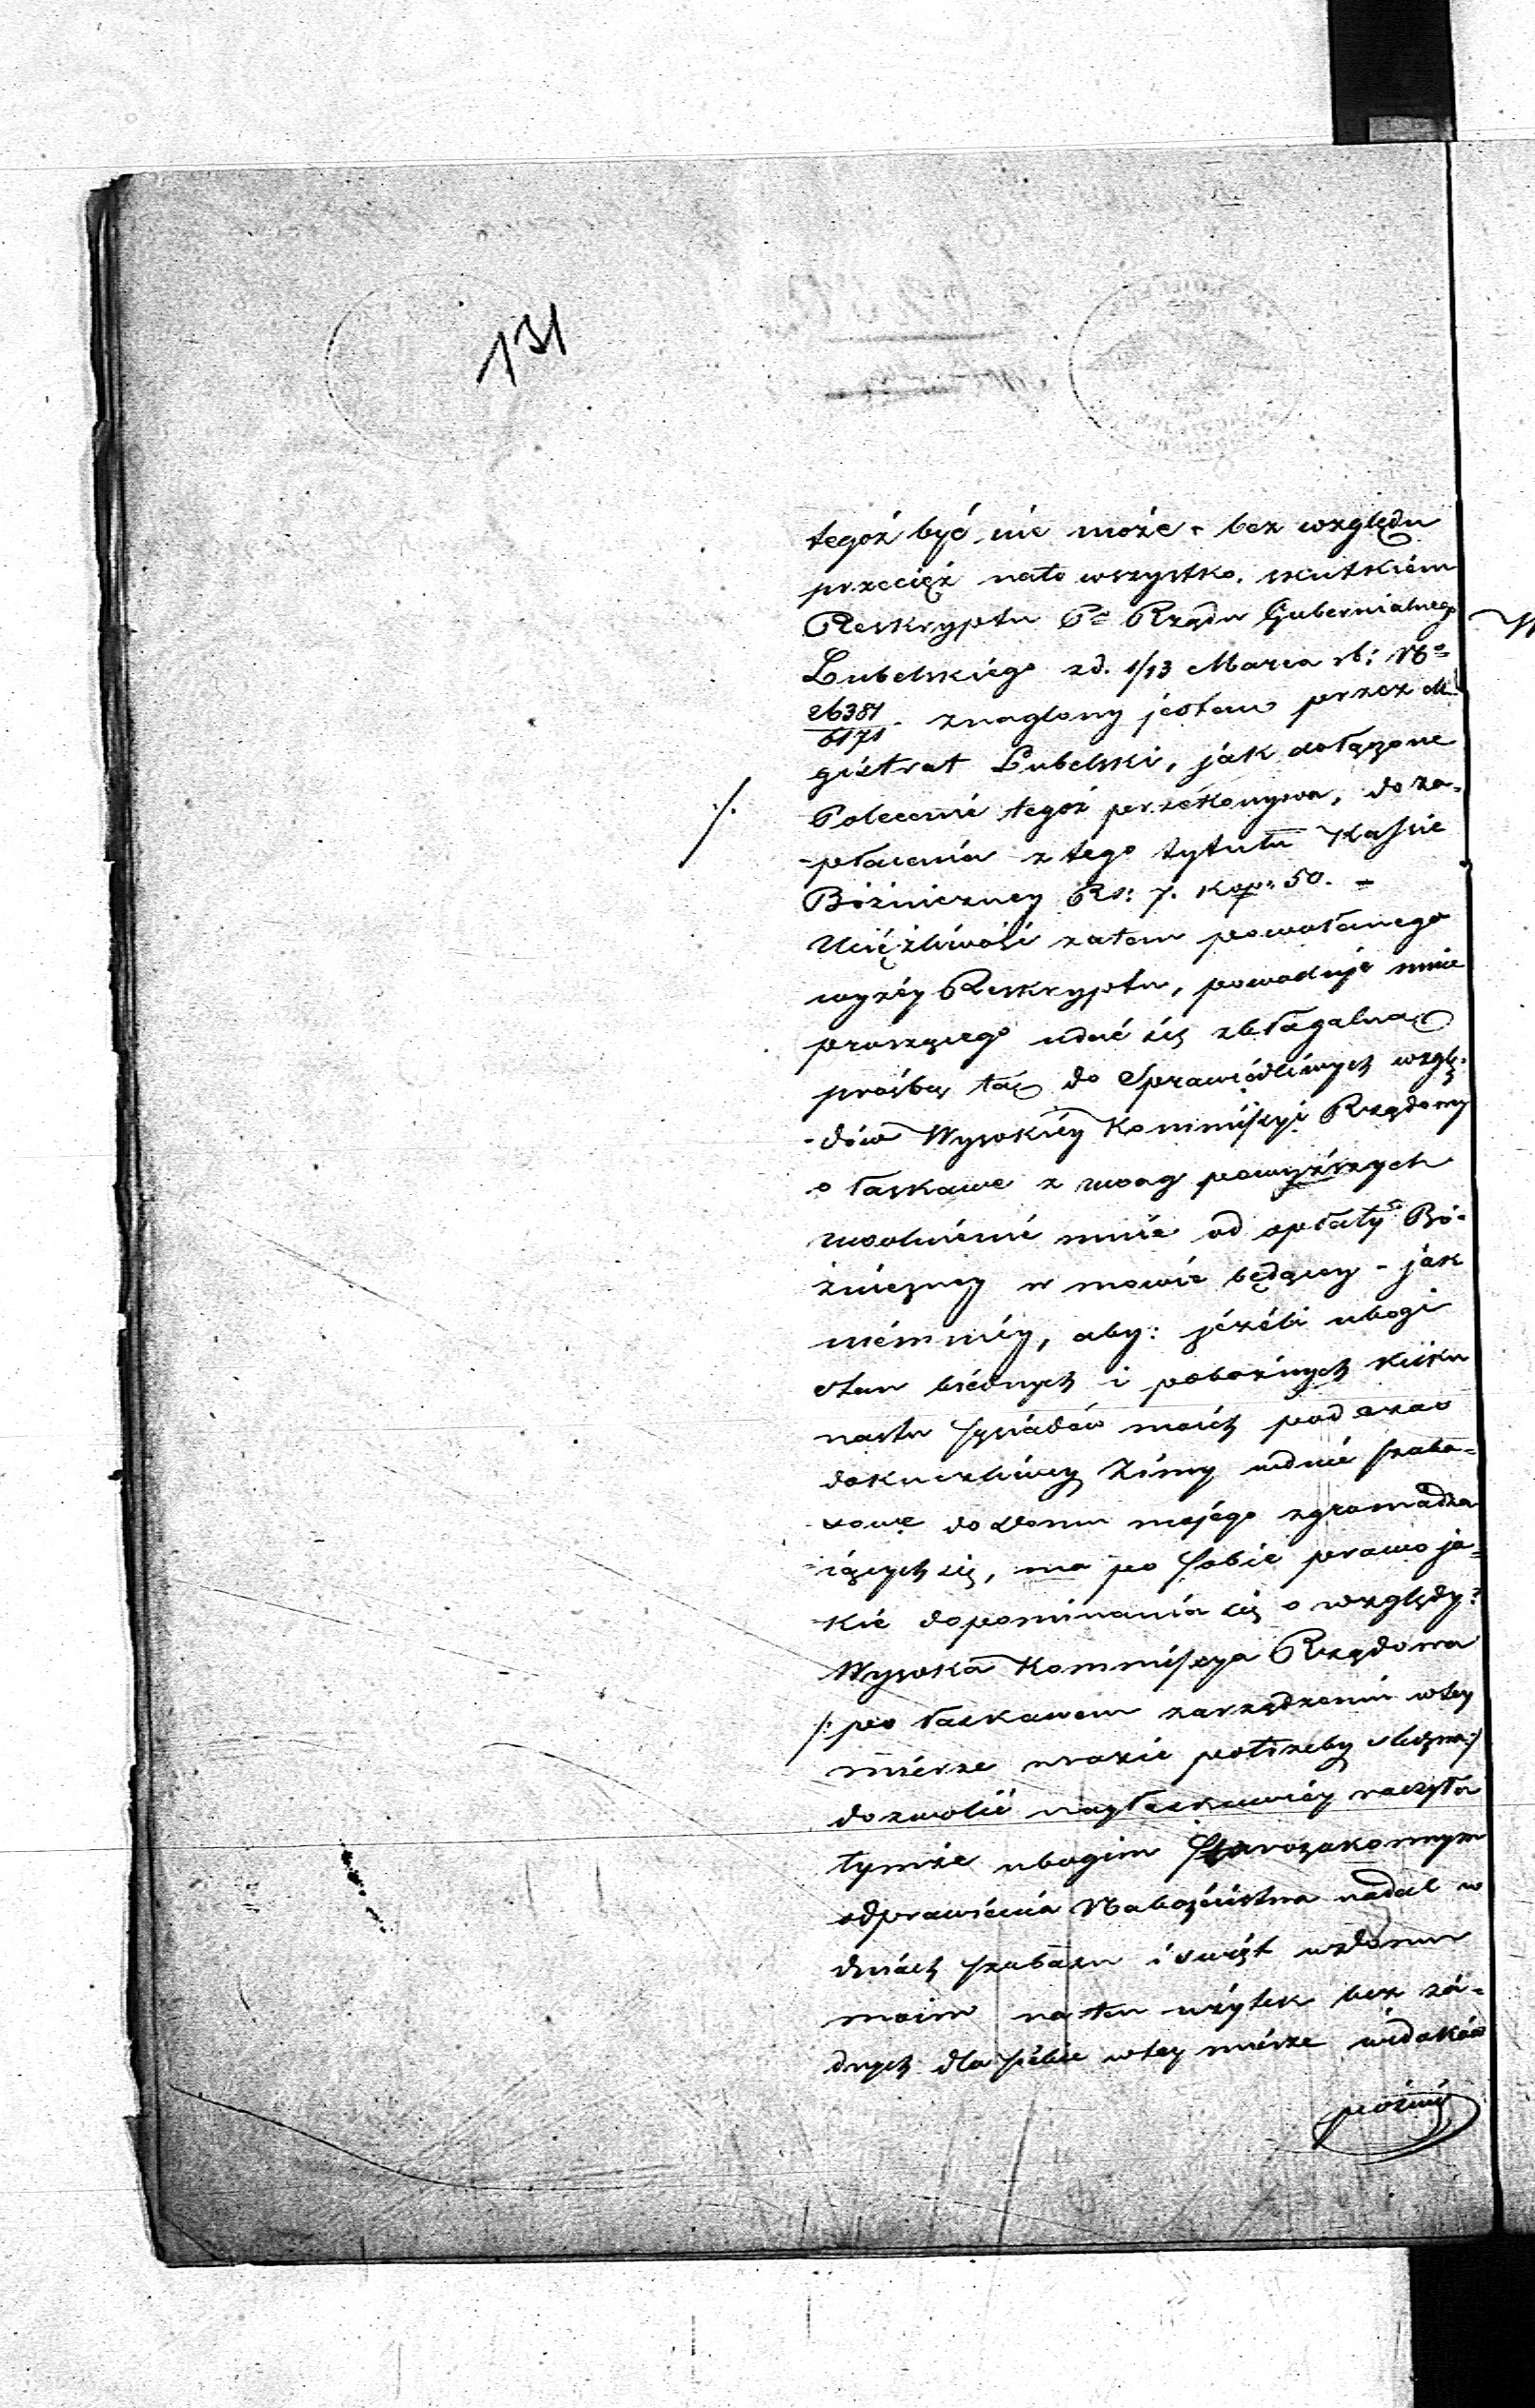 131
tegoż być nie może - bez względu
przecięż nato wszystko, skutkiem
Reskryptu Rządu Gubernialnego
Lubelskiego z d. 1/13 Marca rb: No
26381/6171 - znaglony jestem przez Ma
gistrat Lubelski, jak dołączone
./. Polecenie tegoż przekonywa, do za-
-płacenia z tego tytułu Kassie
Bóżniczney Rs: 7. kop: 50. -
Uciężliwość zatem powołanego
wyżéy Reskryptu, powoduje mnie
proszącego udać się z błagalną
prośbą tą do Sprawiedliwych wzglę-
-dów Wysokiéy Kommissyi Rządowey
o łaskawe z uwag powyższych
uwolnienie mnie od opłaty Bó-
żniczney w mowie będącey - jak
niemniéy, aby: jeżeli ubogi
stan biednych i pobożnych kilku
nastu sąsiadów moich podczas
dokuczliwey Zimy w dnie szaba-
-sowe do domu mojego zgromadza
-iących się, ma po sobie prawo ja-
-kie dopominania się o względy?
Wysoka Kommissya Rządowa
/: po łaskawem zarządzeniu w tey
mierze w razie potrzeby :/
dozwolić nayłaskawiéy raczyła
tymże ubogim Starozakonnym
odprawienia Nabożeństwa nadal w
dniach szabasu i świąt w domu
moim na ten użytek bez żá-
dnych dla siebie w tey mierze widoków